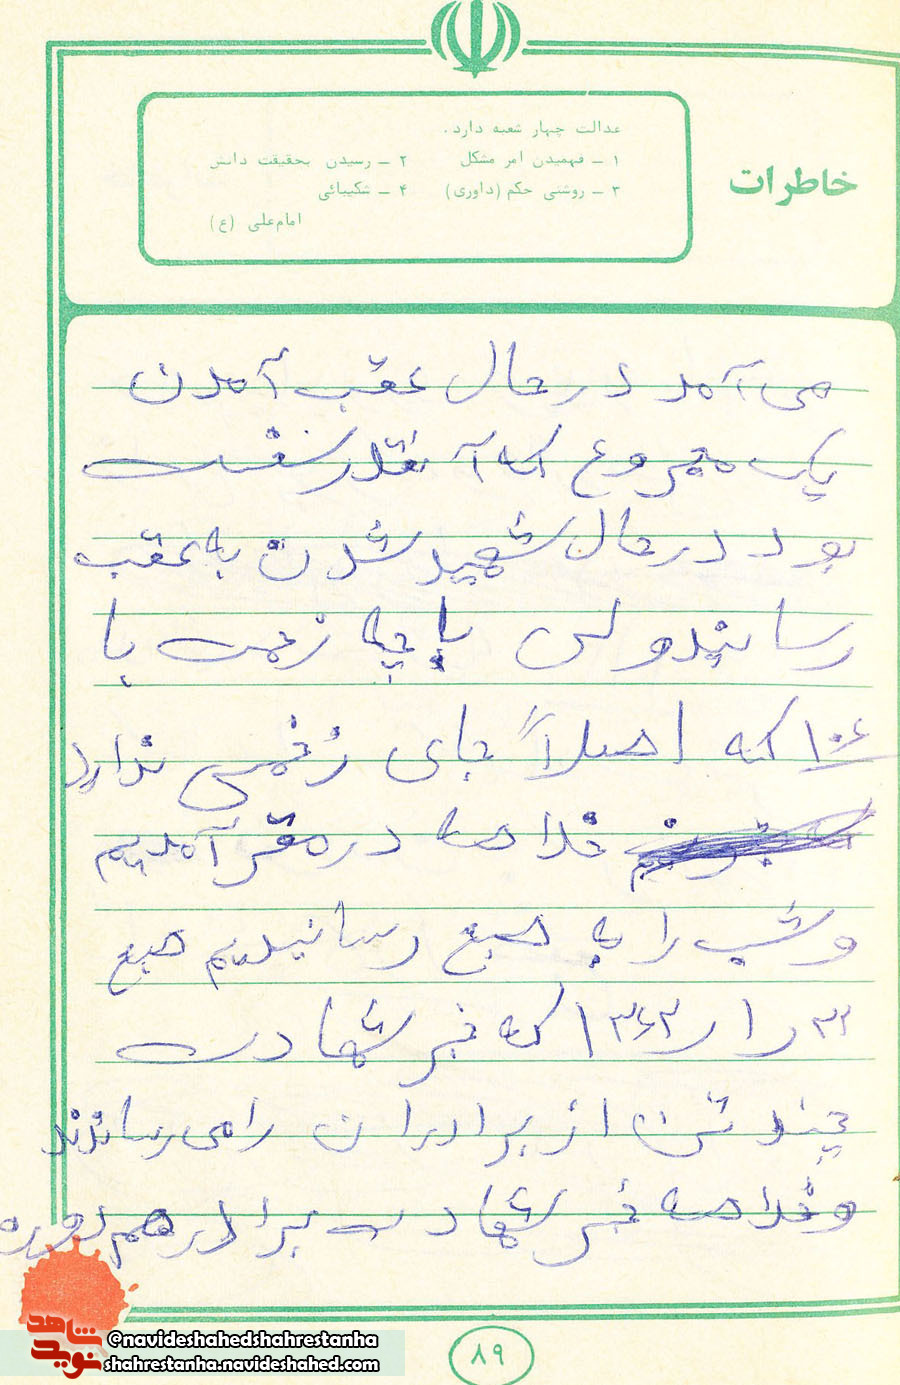 خاطرات
عدالت چهار شعبه دارد.
۱ ـ فهمیدن امر مشکل ۲ ـ رسیدن بحقیقت دانش
۳ ـ روشنی حکم (داوری) ۴ ـ شکیبائی
امام‌علی (ع)
می‌آمد در حال عقب آمدن
یک مجروع که آنقدر سخت
بود در حال شهید شدن به عقب
رسانید ولی با چه زحمت با
۱۰۶ که اصلاً جای زخمی ندارد
خلاصه در مقر آمدیم
و شب را به صبع رسانیدیم صبع
که خبر شهادت
چند تن از برادران را می رساندند
و خلاصه خبر شهادت برادر هم دوره
۸۹
شاهد
نوید
@navideshahedshahrestanha
shahrestanha.navideshahed.com